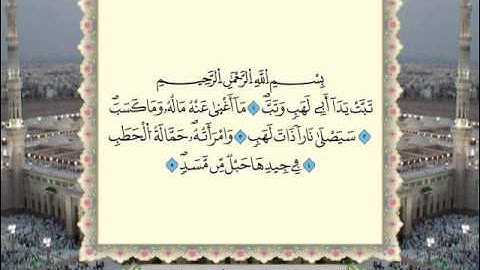 بِسْمِ اللَّهِ الرَّحْمَٰنِ الرَّحِيمِ
تَبَّتْ يَدَآ أَبِي لَهَبٍ وَتَبَّ ۝١ مَآ أَغْنَىٰ عَنْهُ مَالُهُۥ وَمَا كَسَبَ
۝٢ سَيَصْلَىٰ نَارًا ذَاتَ لَهَبٍ ۝٣ وَامْرَأَتُهُۥ حَمَّالَةَ الْحَطَبِ
۝٤ فِي جِيدِهَا حَبْلٌ مِّن مَّسَدٍ ۝٥